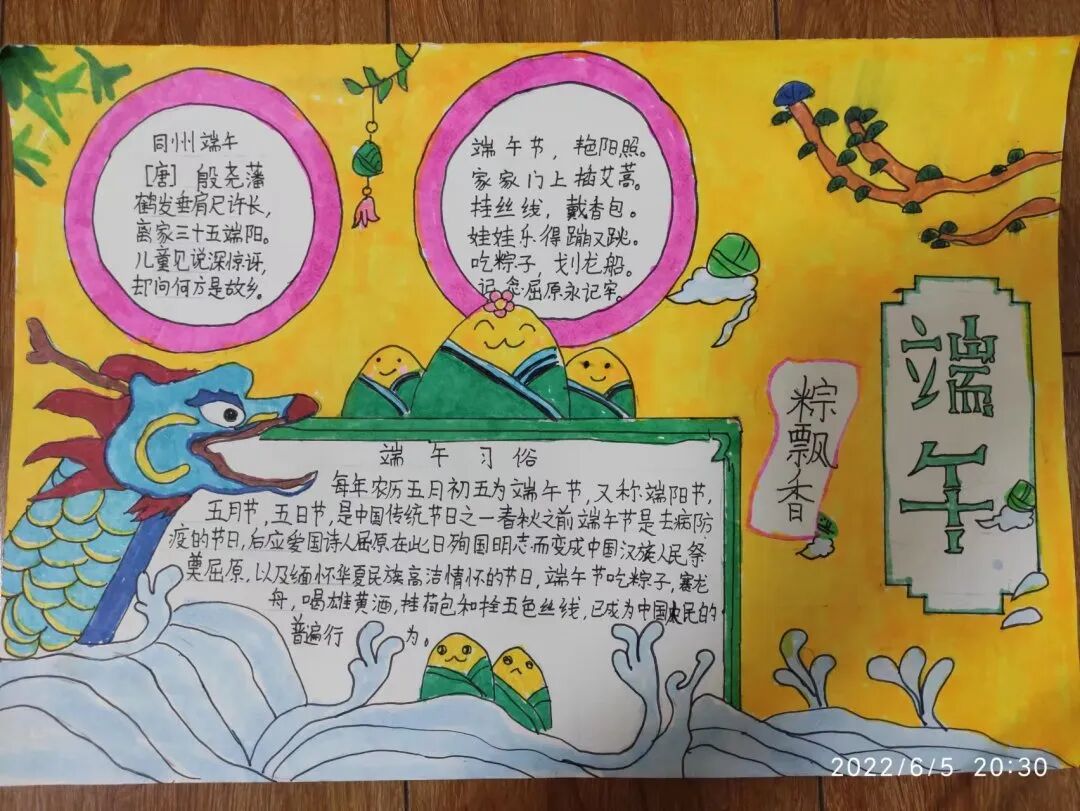 同州端午
[唐] 殷尧藩
鹤发垂肩尺许长,
离家三十五端阳。
儿童见说深惊讶,
却问何方是故乡。
端午节，艳阳照。
家家门上插艾蒿。
挂丝线，戴香包。
娃娃乐得蹦又跳。
吃粽子，划龙船。
记念屈原永记牢。
端午
粽飘香
端午习俗
每年农历五月初五为端午节，又称端阳节，
五月节，五日节，是中国传统节日之一春秋之前端午节是去病防
疫的节日，后应爱国诗人屈原在此日殉国明志而变成中国汉族人民祭
奠屈原，以及缅怀华夏民族高洁情怀的节日，端午节吃粽子，赛龙
舟，喝雄黄酒，挂荷包和拴五色丝线，已成为中国农民的
普遍行为。
2022/6/5 20:30